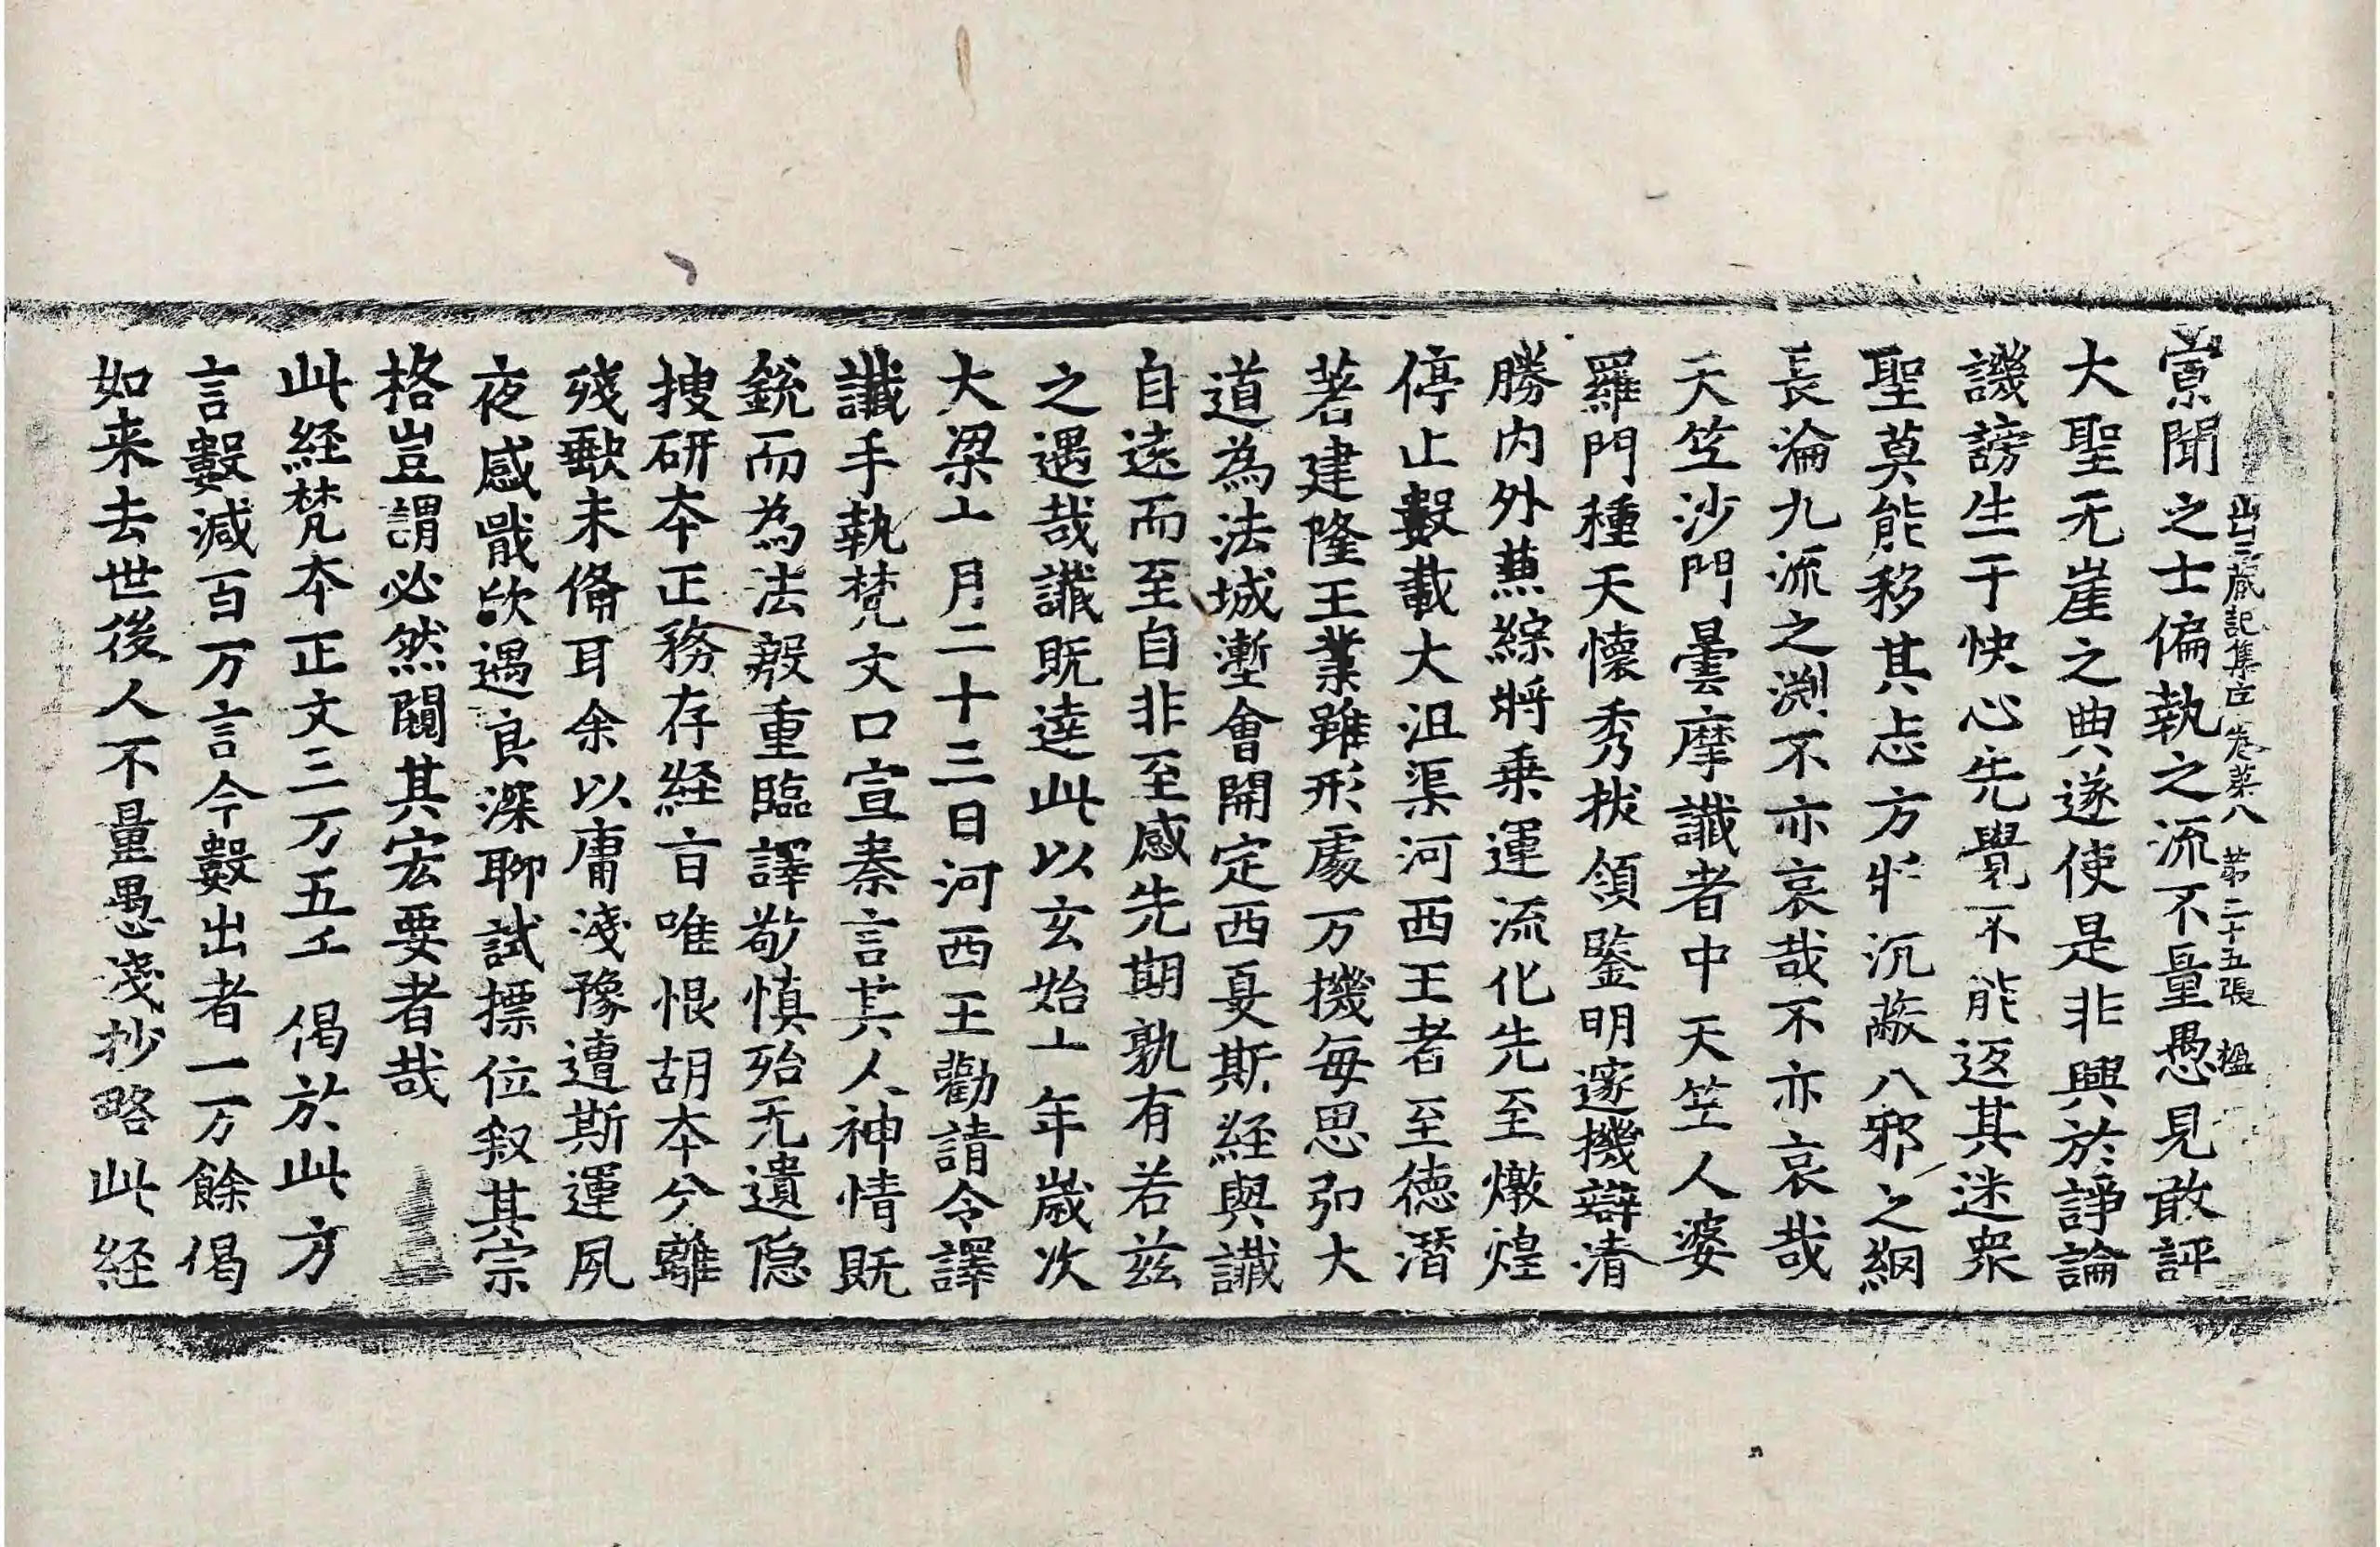 寡聞之士偏執之流不量愚見敢評
出三藏記集序卷第八 第二十五張 楹
大聖无崖之典遂使是非興於諍論
譏謗生于快心先覺不能返其迷衆
聖莫能移其志方將沉蔽八邪之網
長淪九流之渕不亦哀哉不亦哀哉
天竺沙門曇摩讖者中天竺人婆
羅門種天懷秀拔領鑒明邃機辯清
勝内外兼綜將乗運流化先至燉煌
停止數載大沮渠河西王者至德潛
著建隆王業雖形處万機每思弘大
道為法城壍會開定西夏斯経與讖
自遠而至自非至感先期孰有若兹
之遇哉讖既達此以玄始十年歲次
大梁十月二十三日河西王勸請令譯
讖手執梵文口宣秦言其人神情既
銳而為法殷重臨譯敬慎殆无遺隠
搜研本正務存経旨唯恨胡本分離
殘缺未備耳余以庸淺豫遭斯運夙
夜感戢欣遇良深聊試標位叙其宗
格豈謂必然闚其宏要者哉
此経梵本正文三万五千偈於此方
言數減百万言今數出者一万餘偈
如来去世後人不量愚淺抄略此経